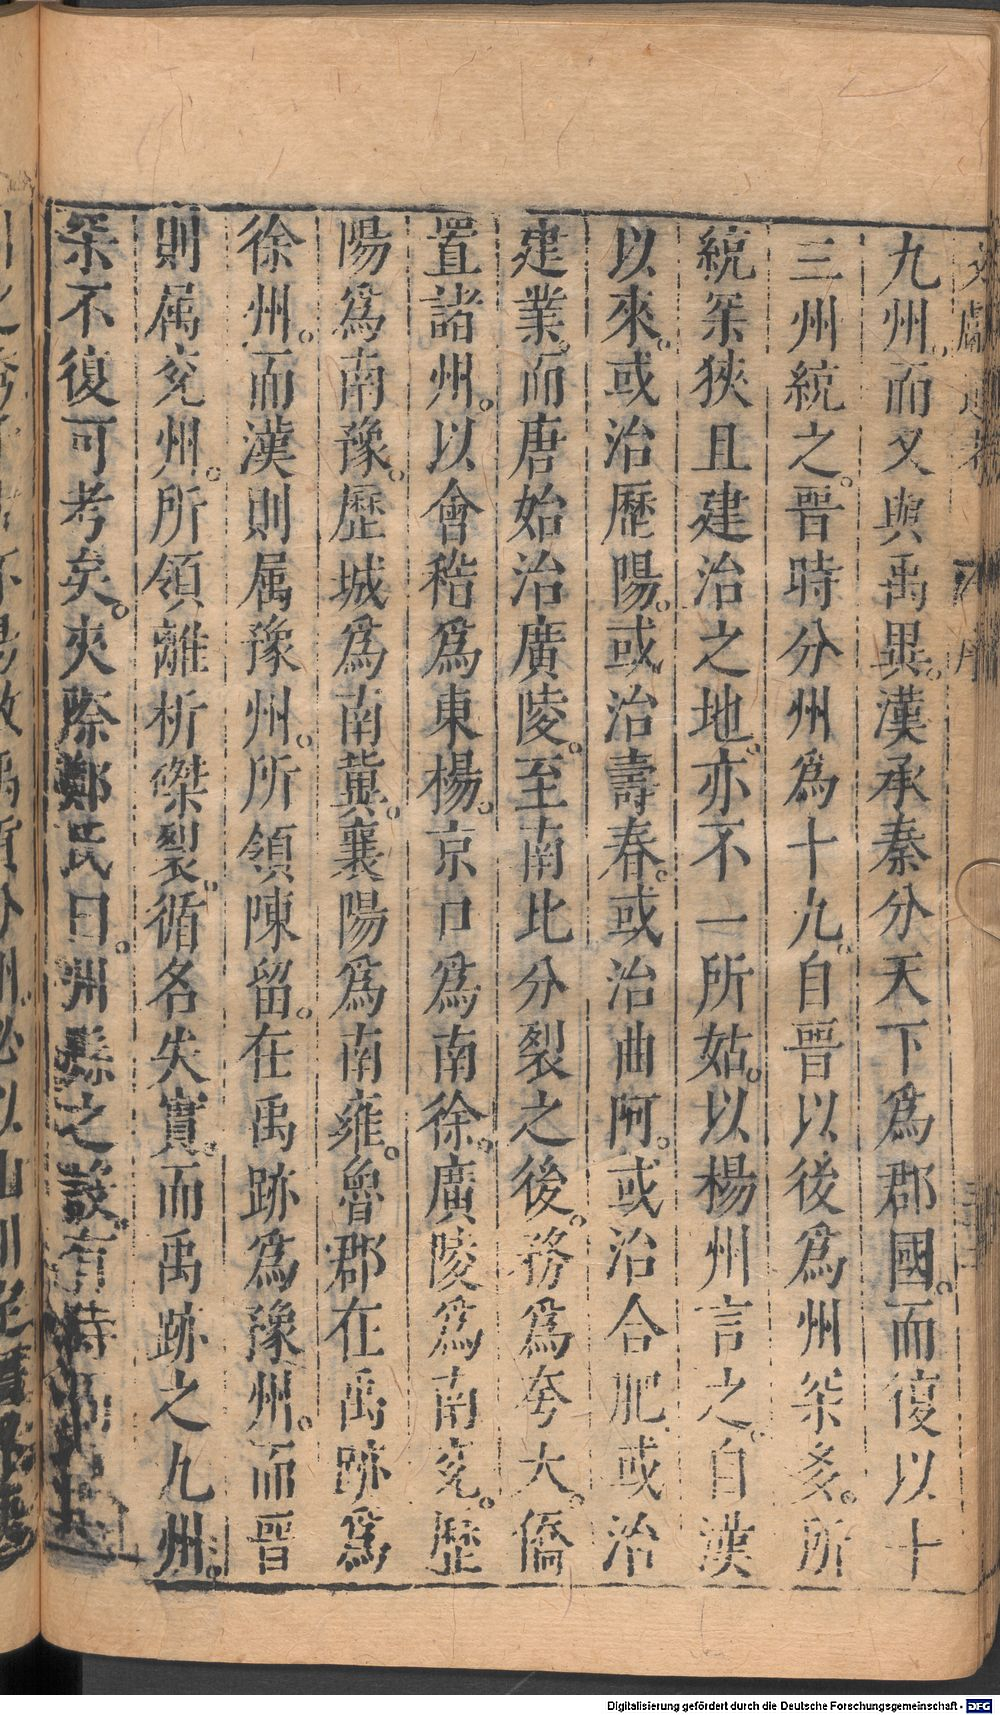 九州。而又與禹異。漢承秦分天下爲郡國。而復以十
三州統之。晉時分州爲十九。自晉以後爲州冞多。所
統冞狹且建治之地。亦不一所姑。以楊州言之。自漢
以來。或治歷陽。或治壽春。或治曲阿。或治合肥。或治
建業。而唐始治廣陵。至南北分裂之後。務爲夸大。僑
置諸州。以會稽爲東楊。京口爲南徐。廣陵爲南兗。歷
陽爲南豫。歷城爲南冀。襄陽爲南雍。魯郡在禹跡爲
徐州。而漢則属豫州。所領陳留。在禹跡爲豫州。而晉
則属兗州。所領離析磔裂。循名失實。而禹跡之九州。
冞不復可考矣。夾際鄭氏曰。州縣之設。有時
Digitalisierung gefördert durch die Deutsche Forschungsgemeinschaft - DFG